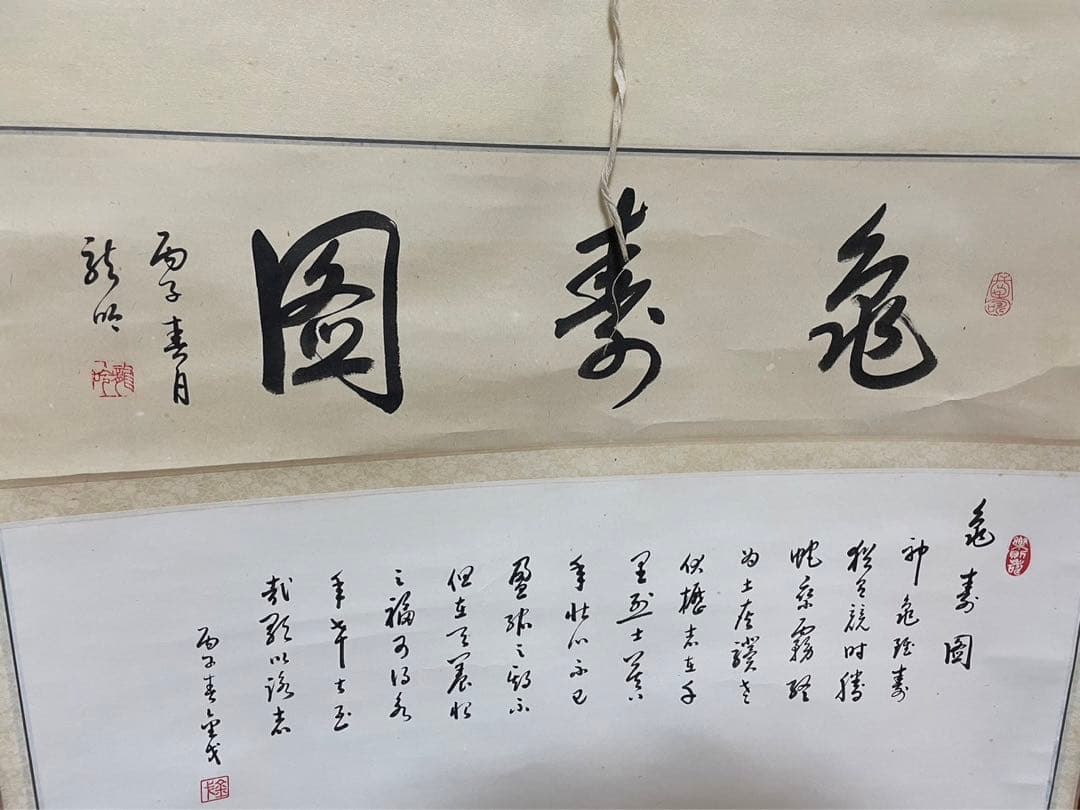 龜壽圖
丙子春月
龍吟
龍吟
龜壽圖
神龜雖壽
猶有競時騰
蛇乘霧終
为土灰驥老
伏櫪志在千
里烈士暮
年壯心不已
盈縮之期不
但在天養怡
之福可得永
年幸甚至
哉歌以詠志
丙子春金戈